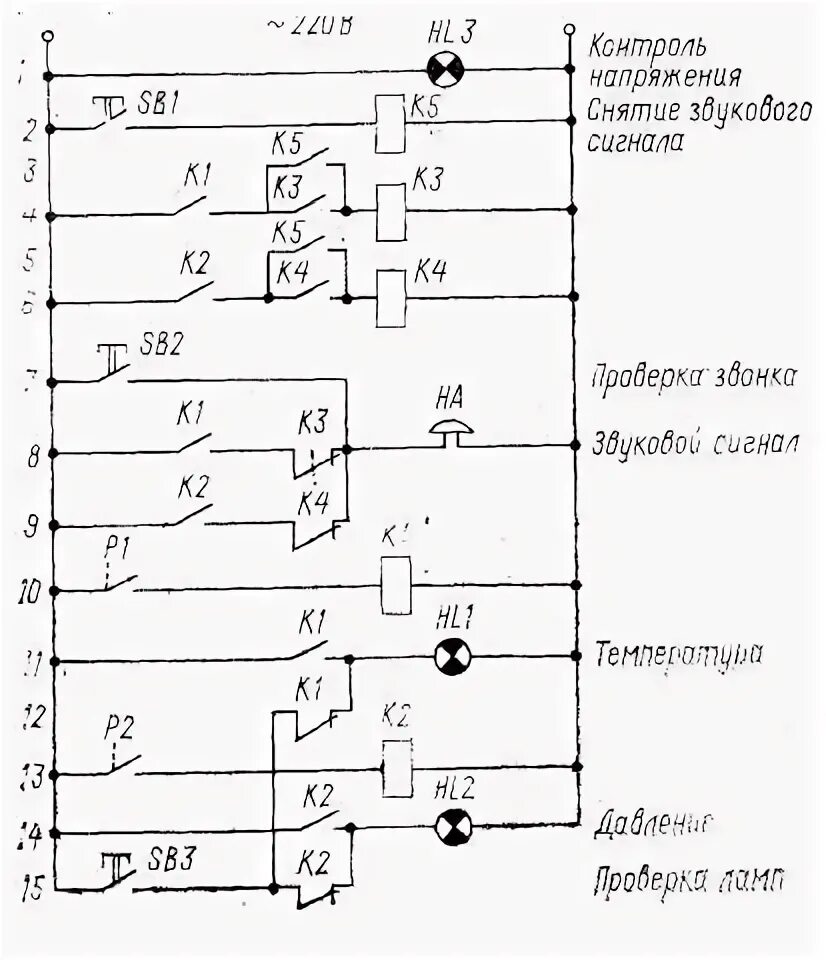 ~ 220 В
HL3
Контроль
напряжения
1
SB1
K5
Снятие звукового
сигнала
2
3
K5
K1
K3
K3
4
5
K5
K2
K4
K4
6
SB2
7
Проверка звонка
K1
K3
HA
8
Звуковой сигнал
K2
K4
9
P1
10
K1
HL1
11
Температура
12
K1
P2
K2
13
HL2
K2
14
Давление
SB3
K2
15
Проверка ламп